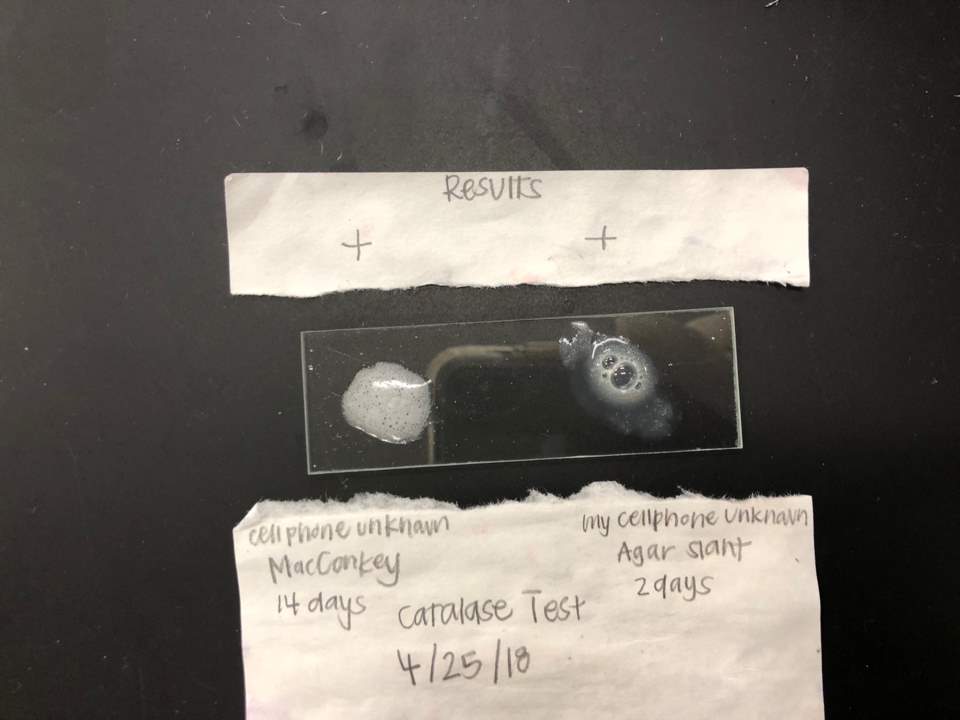 Results
+ +
cellphone unknown
MacConkey
14 days
my cellphone unknown
Agar slant
2 days
Catalase Test
4/25/18